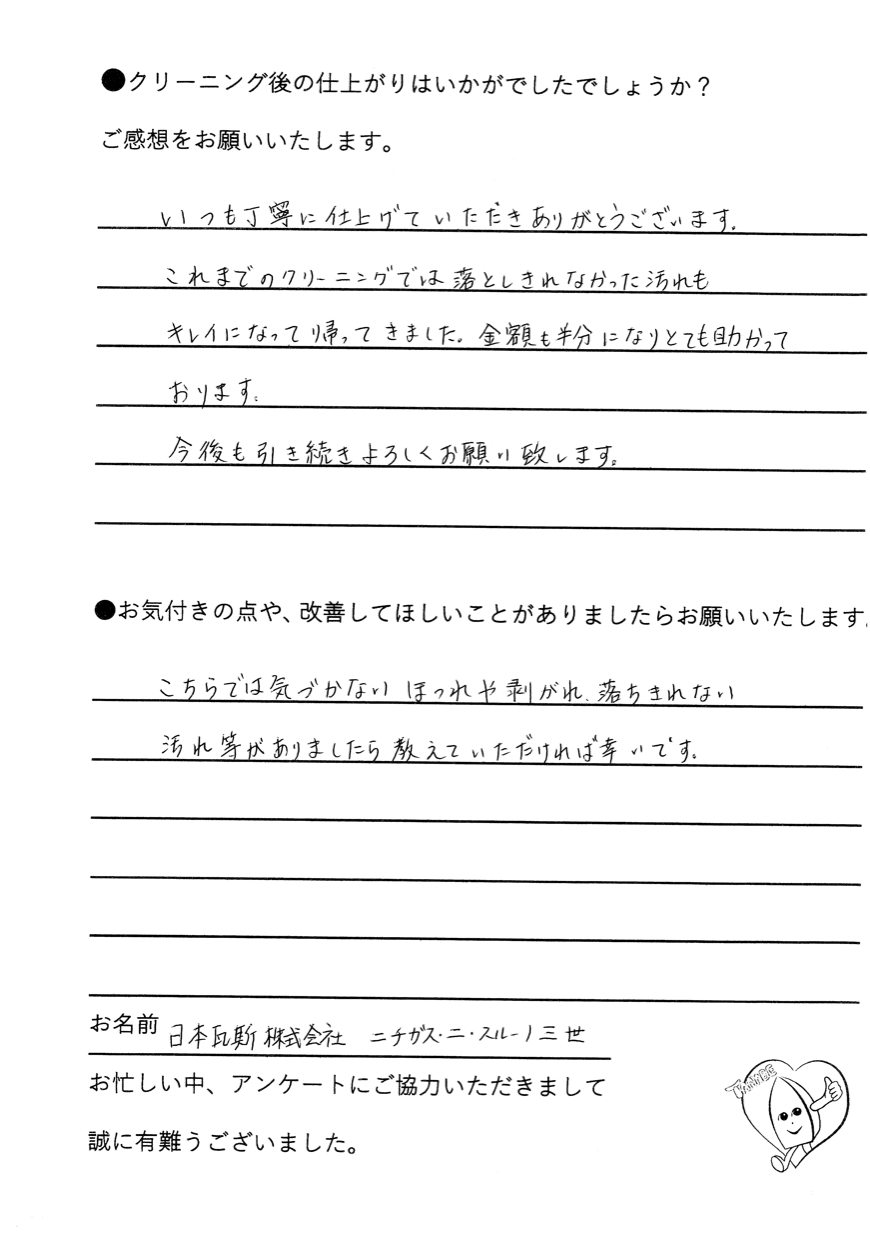 ●クリーニング後の仕上がりはいかがでしたでしょうか？
ご感想をお願いいたします。
いつも丁寧に仕上げていただきありがとうございます。
これまでのクリーニングでは落としきれなかった汚れも
キレイになって帰ってきました。金額も半分になりとても助かって
おります。
今後も引き続きよろしくお願い致します。
●お気付きの点や、改善してほしいことがありましたらお願いいたします。
こちらでは気づかないほつれや剥がれ、落ちきれない
汚れ等がありましたら教えていただければ幸いです。
お名前 日本瓦斯株式会社 ニチガス・ニ・スルーノ三世
お忙しい中、アンケートにご協力いただきまして
TANABE
誠に有難うございました。